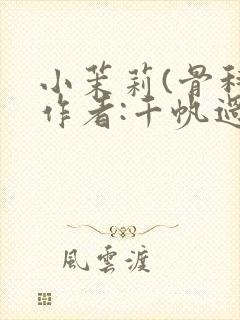 小茉莉(骨科
作者:千帆過
風雲渡